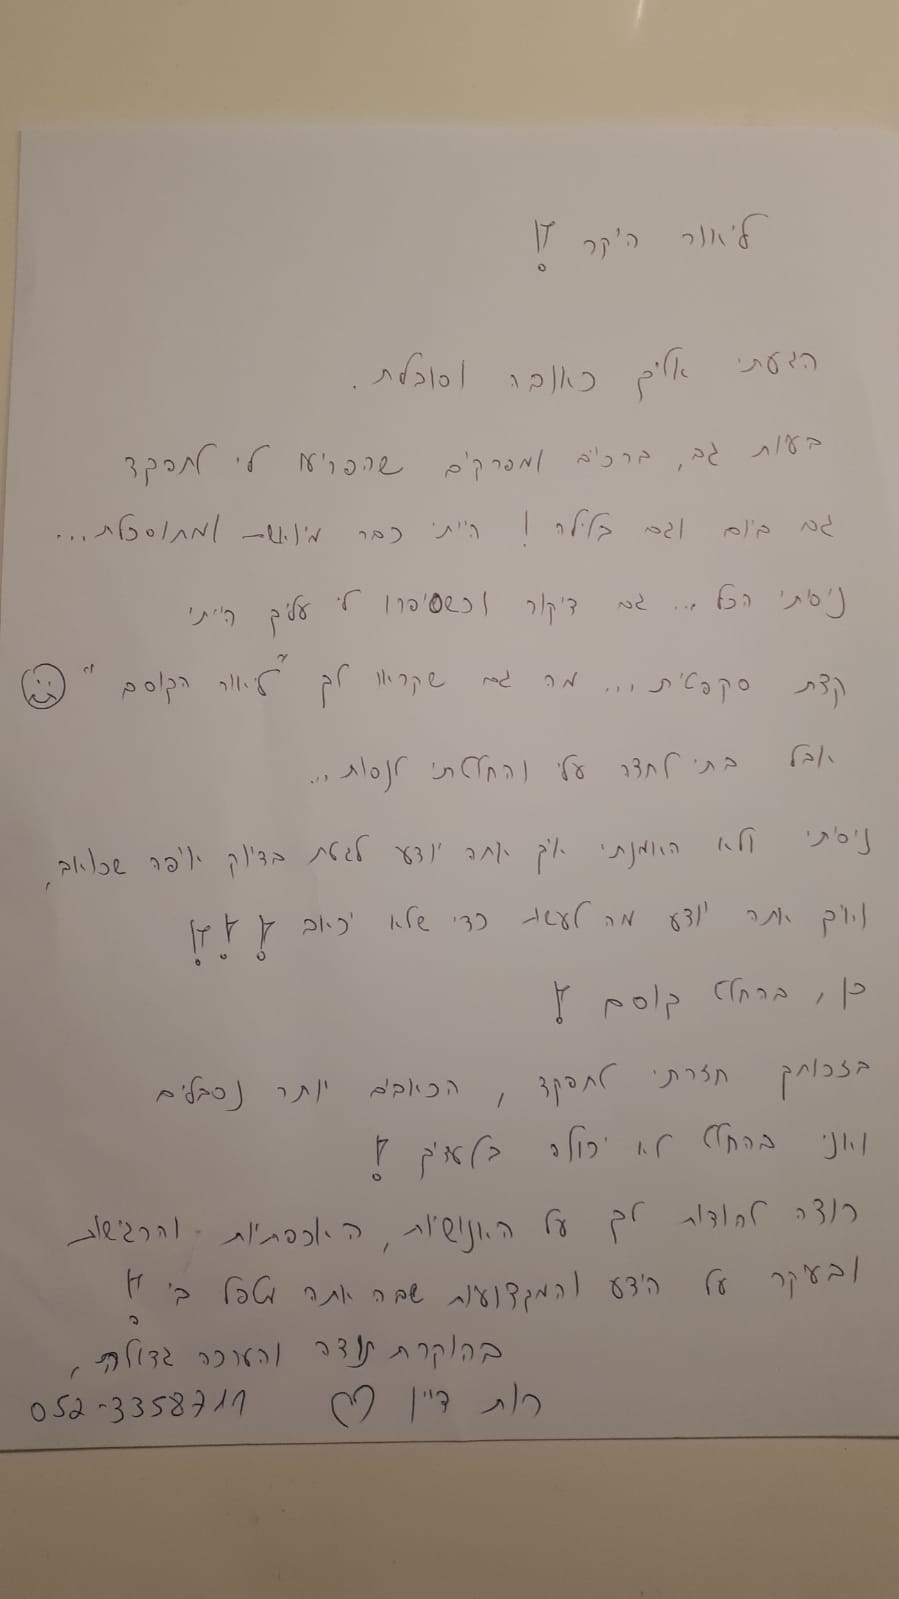 ליאור היקר !
הגעתי אליך כאובה וסובלת.
בעיות גב, ברכיים ומפרקים שהפריעו לי לתפקד
גם ביום וגם בלילה ! הייתי כבר מיואשת ומתוסכלת...
ניסיתי הכל... גם דיקור וכשסיפרו לי עליך הייתי
קצת סקפטית... מה גם שקראו לך "ליאור הקוסם"
אבל בתי לחצה עלי והחלטתי לנסות...
ניסיתי ולא האמנתי איך אתה יודע לגעת בדיוק איפה שכואב,
ואיך אתה יודע מה לעשות כדי שלא יכאב !!!
כן, בהחלט קוסם !
בזכותך חזרתי לתפקד, הכאבים יותר נסבלים
ואני בהחלט לא יכולה בלעדיך !
רוצה להודות לך על האנושיות, האכפתיות והרגישות
ובעיקר על הידע והמקצועיות שבה אתה מטפל בי !
בהוקרת תודה והערכה גדולה,
רות דיין ♡ 052-3358711